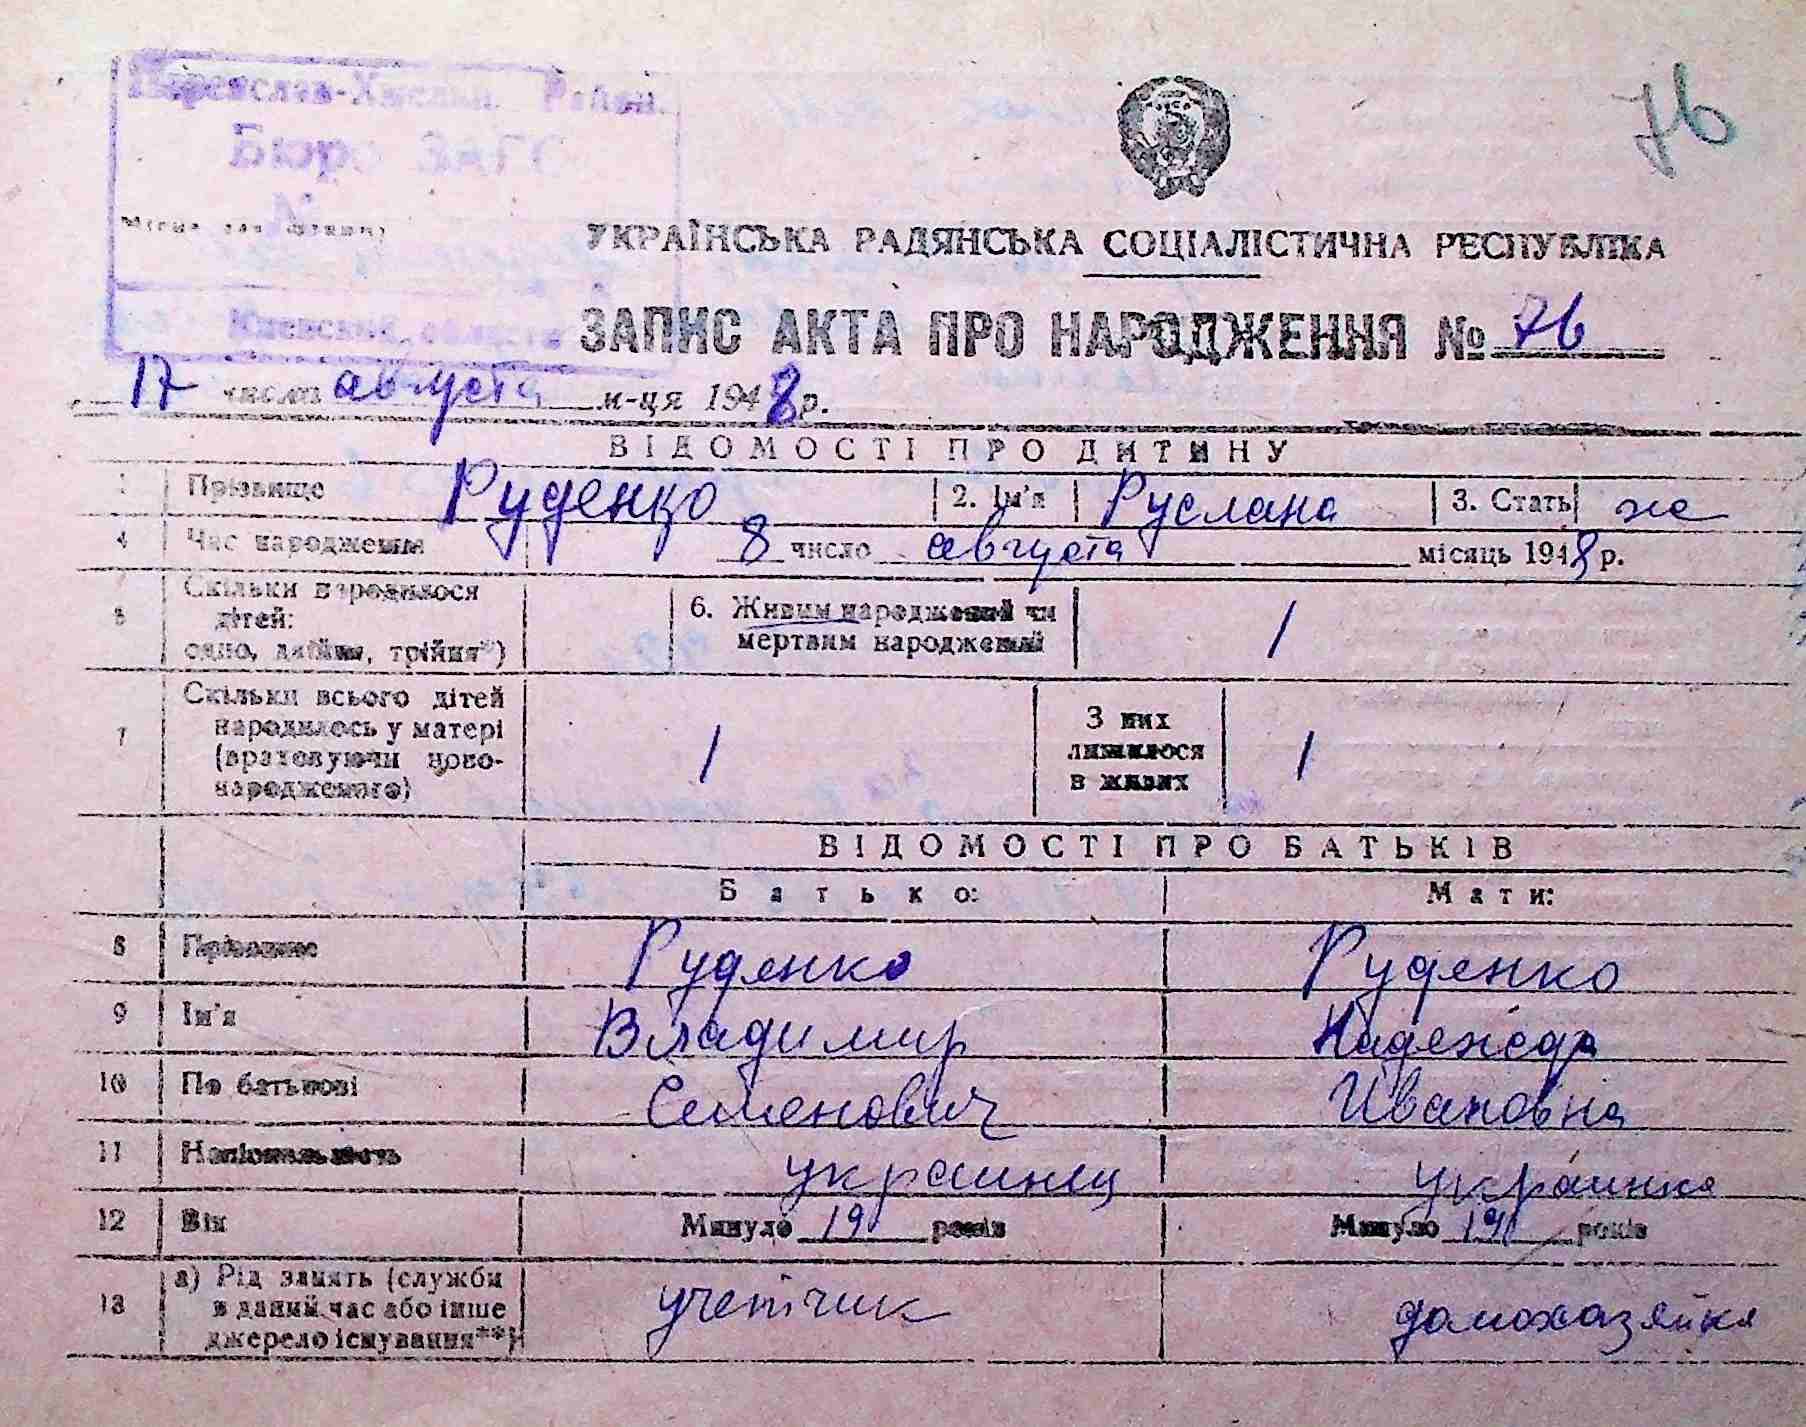 76
Переяслав-Хмельн. Район.
Бюро ЗАГС
№
Місце для штампу
УКРАЇНСЬКА РАДЯНСЬКА СОЦІАЛІСТИЧНА РЕСПУБЛІКА
Киевской, области
ЗАПИС АКТА ПРО НАРОДЖЕННЯ № 76
17 числа августа м-ця 1948 р.
ВІДОМОСТІ ПРО ДИТИНУ
1 Прізвище Руденко 2. Ім'я Руслана 3. Стать ж
4 Час народження 8 число августа місяць 1948 р.
5 Скільки народилося
дітей:
одно, двійня, трійня*)
6. Живим народжений чи
мертвим народжений
1
7 Скільки всього дітей
народилось у матері
(враховуючи ново-
народженого)
1
З них
лишилося
в живих
1
ВІДОМОСТІ ПРО БАТЬКІВ
Батько: Мати:
8 Прізвище Руденко Руденко
9 Ім'я Владимир Надежда
10 По батькові Семенович Ивановна
11 Національність украинец украинка
12 Вік Минуло 19 років Минуло 19 років
13 а) Рід занять (служби
в даний час або інше
джерело існування**)
учетчик домохазяйка